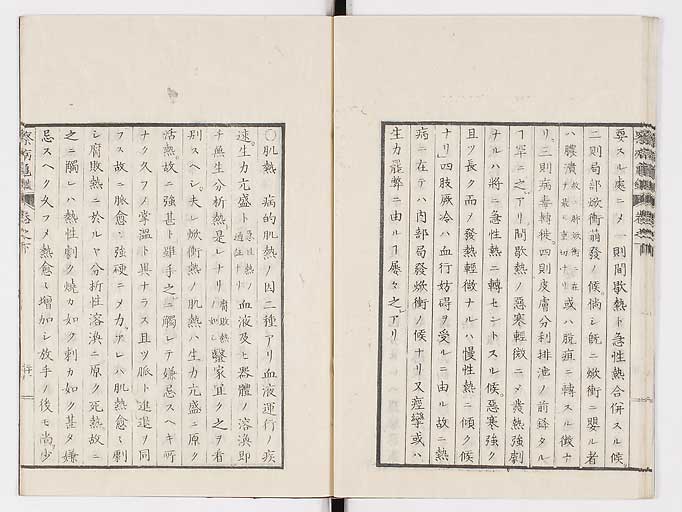 要スル處ニ〆一則間歇熱ト急性熱合併スル候
二則局部焮衝萠發ノ候倘シ既ニ焮衝ニ嬰ル者
ハ膿潰或ハ脱疽ニ轉スル徴ナ
リ三則病毒轉徙四則皮膚分利排泄ノ前鋒タル
ヿ罕ニ之アリ間歇熱ノ惡寒輕微ニ〆發熱強劇
ナルハ將ニ急性熱ニ轉セントスル候惡寒強ク
且ツ長ク而ノ發熱輕微ナルハ慢性熱ニ傾ク候
ナリ四肢厥冷ハ血行妨碍ヲ受ルニ由ル故ニ熱
病ニ在テハ内部局發焮衝ノ候ナリ又痙攣或ハ
生力罷弊ニ由ルヿ屡々之アリ
〇肌熱 病的肌熱ノ因二種アリ血液運行ノ疾
速生力亢盛ト血液及ヒ器體ノ溶渙即
チ無生分析熱是レナリ醫家宜ク之ヲ看
別スヘシ夫レ焮衝熱ノ肌熱ハ生力亢盛ニ原ク
活熱故ニ強甚ト雖手之ニ觸レテ嫌忌スヘキ所
ナク久フノ掌温ト異ナラス且ツ脈ト進退ヲ同
フス故ニ脈愈々強硬ニ〆力アレハ肌熱愈々劇
シ腐敗熱ニ於ルヤ分析性溶渙ニ原ク死熱故ニ
之ニ觸レハ熱性劇ク燒カ如ク刺カ如ク甚タ嫌
忌スヘク久フ〆熱愈々増加シ放手ノ後モ尚少